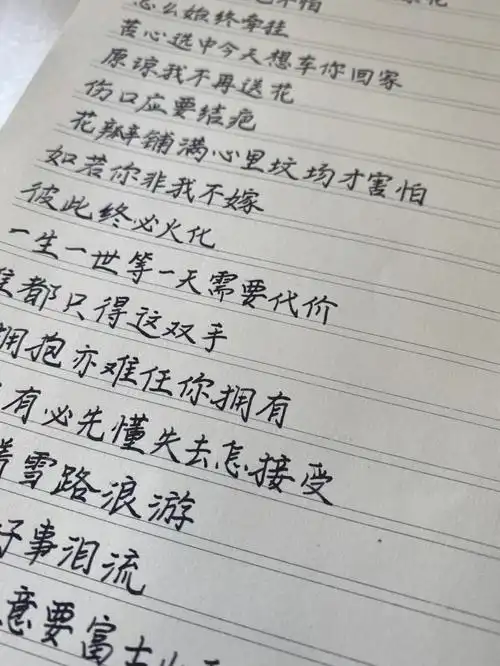 怎么始终牵挂
苦心选中今天想车你回家
原谅我不再送花
伤口应要结疤
花瓣铺满心里坟场才害怕
如若你非我不嫁
彼此终必火化
一生一世等一天需要代价
都只得这双手
拥抱亦难任你拥有
有必先懂失去怎接受
雪路浪游
好事泪流
意要富士山